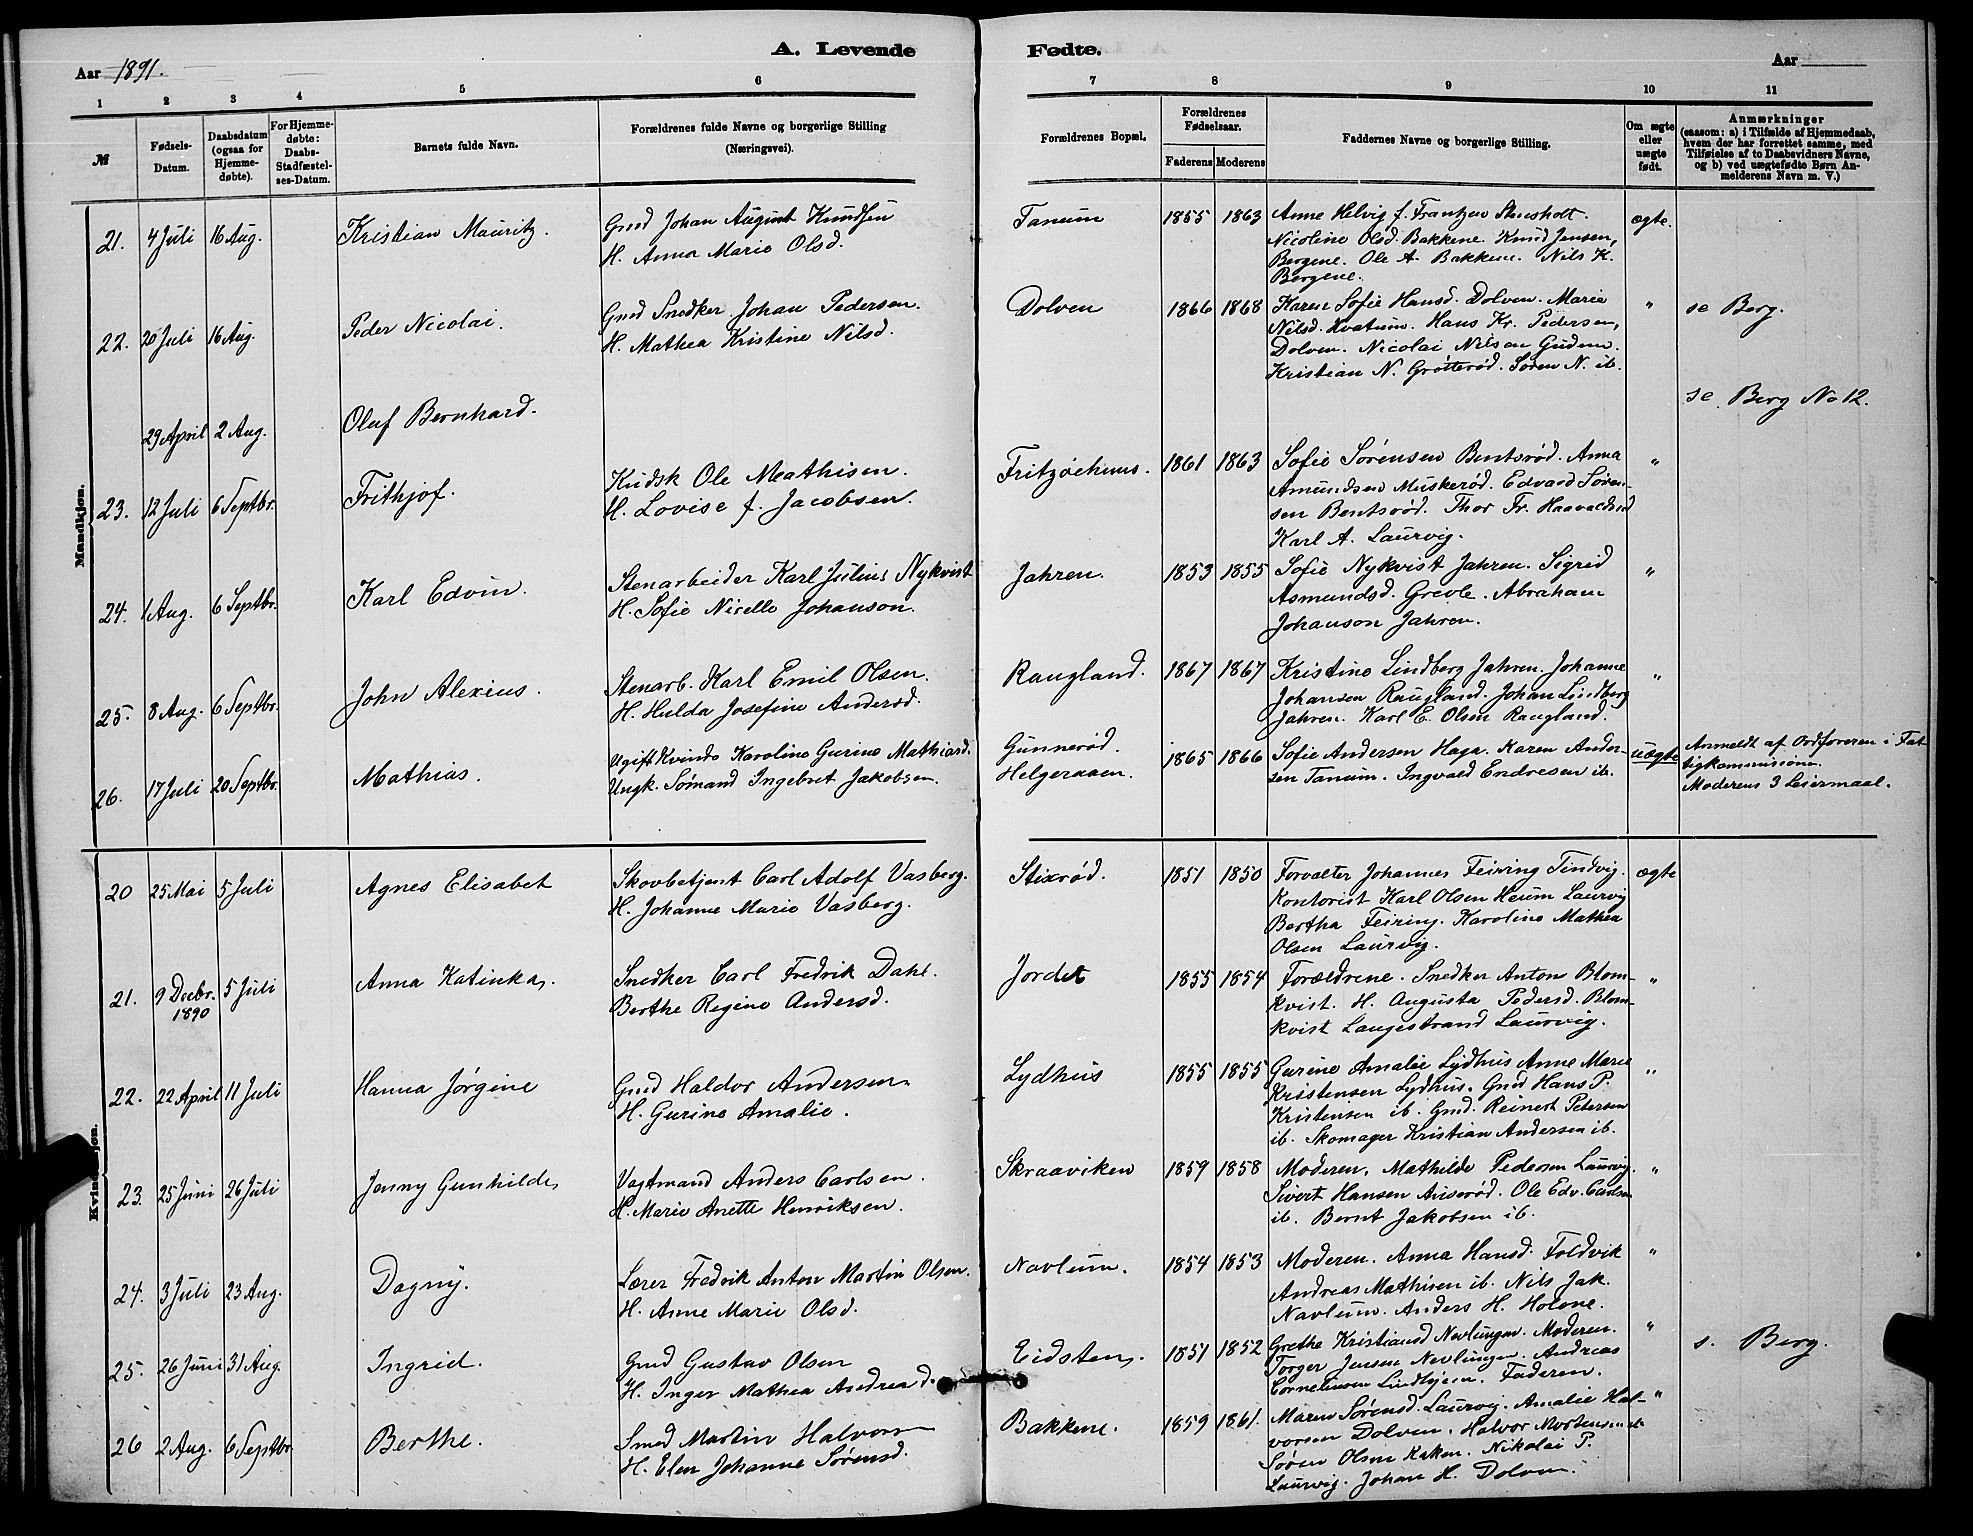 A. Levende Fødte.
Aar 1891. Aar
1 2 3 4 5 6 7 8 9 10 11
№
Fødsels-Datum.
Daabsdatum (ogsaa for Hjemme-døbte).
For Hjemme-døbte: Daabs-Stadfæstel-ses-Datum.
Barnets fulde Navn.
Forældrenes fulde Navne og borgerlige Stilling (Næringsvei).
Forældrenes Bopæl.
Forældrenes Fødselsaar.
Faderens Moderens
Faddernes Navne og borgerlige Stilling.
Om ægte eller uægte født.
Anmærkninger
(saasom: a) i Tilfælde af Hjemmedaab,
hvem der har forrettet samme, med
Tilføielse af to Daabsvidners Navne,
og b) ved uægtefødte Børn An-
melderens Navn m. V.)
Mandkjøn.
21. 4 Juli 16 Aug. Kristian Mauritz.
Gmd Johan August Knudsen
H. Anna Marie Olsd.
Tanum 1855 1863
Anne Helvig f. Frantzen
Nicoline Olsd. Bakkene. Knud Jensen,
Bergene. Ole A. Bakkene. Nils K.
Bergene.
ægte.
22. 20 Juli 16 Aug. Peder Nicolai.
Gmd Snedker Johan Pedersen.
H. Mathea Kristine Nilsd.
Dolven 1866 1868
Karen Sofie Hansd. Dolven. Marie
Nilsd. Kvatum. Hans Kr. Pedersen,
Dolven. Nicolai Nilsen Gudem.
Kristian N. Grøtterød. Søren N. ib.
" se Berg.
29 April 2 Aug. Oluf Bernhard.
se Berg No 12.
23. 12 Juli 6 Septbr. Frithjof.
Kudsk Ole Mathisen.
H. Lovise f. Jacobsen.
Fritzøehuus. 1861 1863
Sofie Sørensen Bentsrød. Anna
Amundsen Muskerød. Edvard Søren-
sen Bentsrød. Thor Fr. Haavaldsen
Karl A. Laurvig.
"
24. 1 Aug. 6 Septbr. Karl Edvin.
Stenarbeider Karl Julius Nykvist
H. Sofie Nicello Johanson.
Jahren. 1853 1855
Sofie Nykvist Jahren. Sigrid
Asmundsd. Grevle. Abraham
Johanson Jahren.
"
25. 8 Aug. 6 Septbr. John Alexius.
Stenarb. Karl Emil Olsen.
H. Hulda Josefine Andersd.
Raugland. 1867 1867
Kristine Lindberg Jahren. Johanne
Johansen Raugland. Johan Lindberg
Jahren. Karl E. Olsen Raugland.
"
26. 17 Juli 20 Septbr. Mathias.
Ugift Kvinde Karoline Gurine Mathiasd.
Ungk. Sømand Ingebret Jakobsen.
Gunnerød.
Helgeraaen. 1865 1866
Sofie Andersen Haga. Karen Ander-
sen Tanum. Ingvald Endresen ib.
uægte
Anmeldt af Ordføreren i Fat-
tigkommissionen.
Moderens 3 Leiermaal.
Kvindekjøn.
20 25 Mai 5 Juli Agnes Elisabet
Skovbetjent Carl Adolf Vasberg.
H. Johanne Marie Vasberg.
Stixrød. 1851 1850
Forvalter Johannes Feiring Tindvig.
Kontorist Karl Olsen Heum Laurvig
Bertha Feiring. Karoline Mathea
Olsen Laurvig.
ægte
21. 9 Decbr. 1890 5 Juli Anna Katinka.
Snedker Carl Fredrik Dahl.
Berthe Regine Andersd.
Jordet 1855 1854
Forældrene. Snedker Anton Blom-
kvist. H. Augusta Pedersd. Blom-
kvist Langestrand Laurvig.
"
22. 22 April 11 Juli Hanna Jørgine
Gmd Haldor Andersen
H. Gurine Amalie.
Lydhus 1855 1855
Gurine Amalie Lydhus Anne Marie
Kristensen Lydhus. Gmd Hans P.
Kristensen ib. Gmd. Reinert Petersen
ib. Skomager Kristian Andersen ib.
"
23. 25 Juni 26 Juli Jenny Gunhilde
Vagtmand Anders Carlsen.
H. Marie Anette Henriksen.
Skraaviken 1859 1858
Moderen, Mathilde Pedersen Laurvig.
Sivert Hansen Auserød. Ole Edv. Carlsen
ib. Bernt Jakobsen ib.
"
24. 3 Juli 23 Aug. Dagny.
Lærer Fredrik Anton Martin Olsen.
H. Anne Marie Olsd.
Navlum. 1854 1853
Moderen. Anna Hansd. Foldvik
Andreas Mathisen ib. Nils Jak.
Navlum. Anders H. Holone.
"
25. 26 Juni 31 Aug. Ingrid.
Gmd Gustav Olsen
H. Inger Mathea Andread.
Eidsten. 1851 1852
Grethe Kristiansd Nevlungen. Moderen.
Torger Jensen Nevlungen. Andreas
Corneliussen Lindhjem. Faderen.
" s. Berg.
26 2 Aug. 6 Septbr. Berthe.
Smed Martin Halvorsen
H. Elen Johanne Sørensd.
Bakkene. 1859 1861.
Maren Sørensd. Laurvig. Amalie Hal-
vorsen Dolven. Halvor Mortensen ib
Søren Olsen Kaken. Nikolai P.
Laurvig. Johan H. Dolven.
"